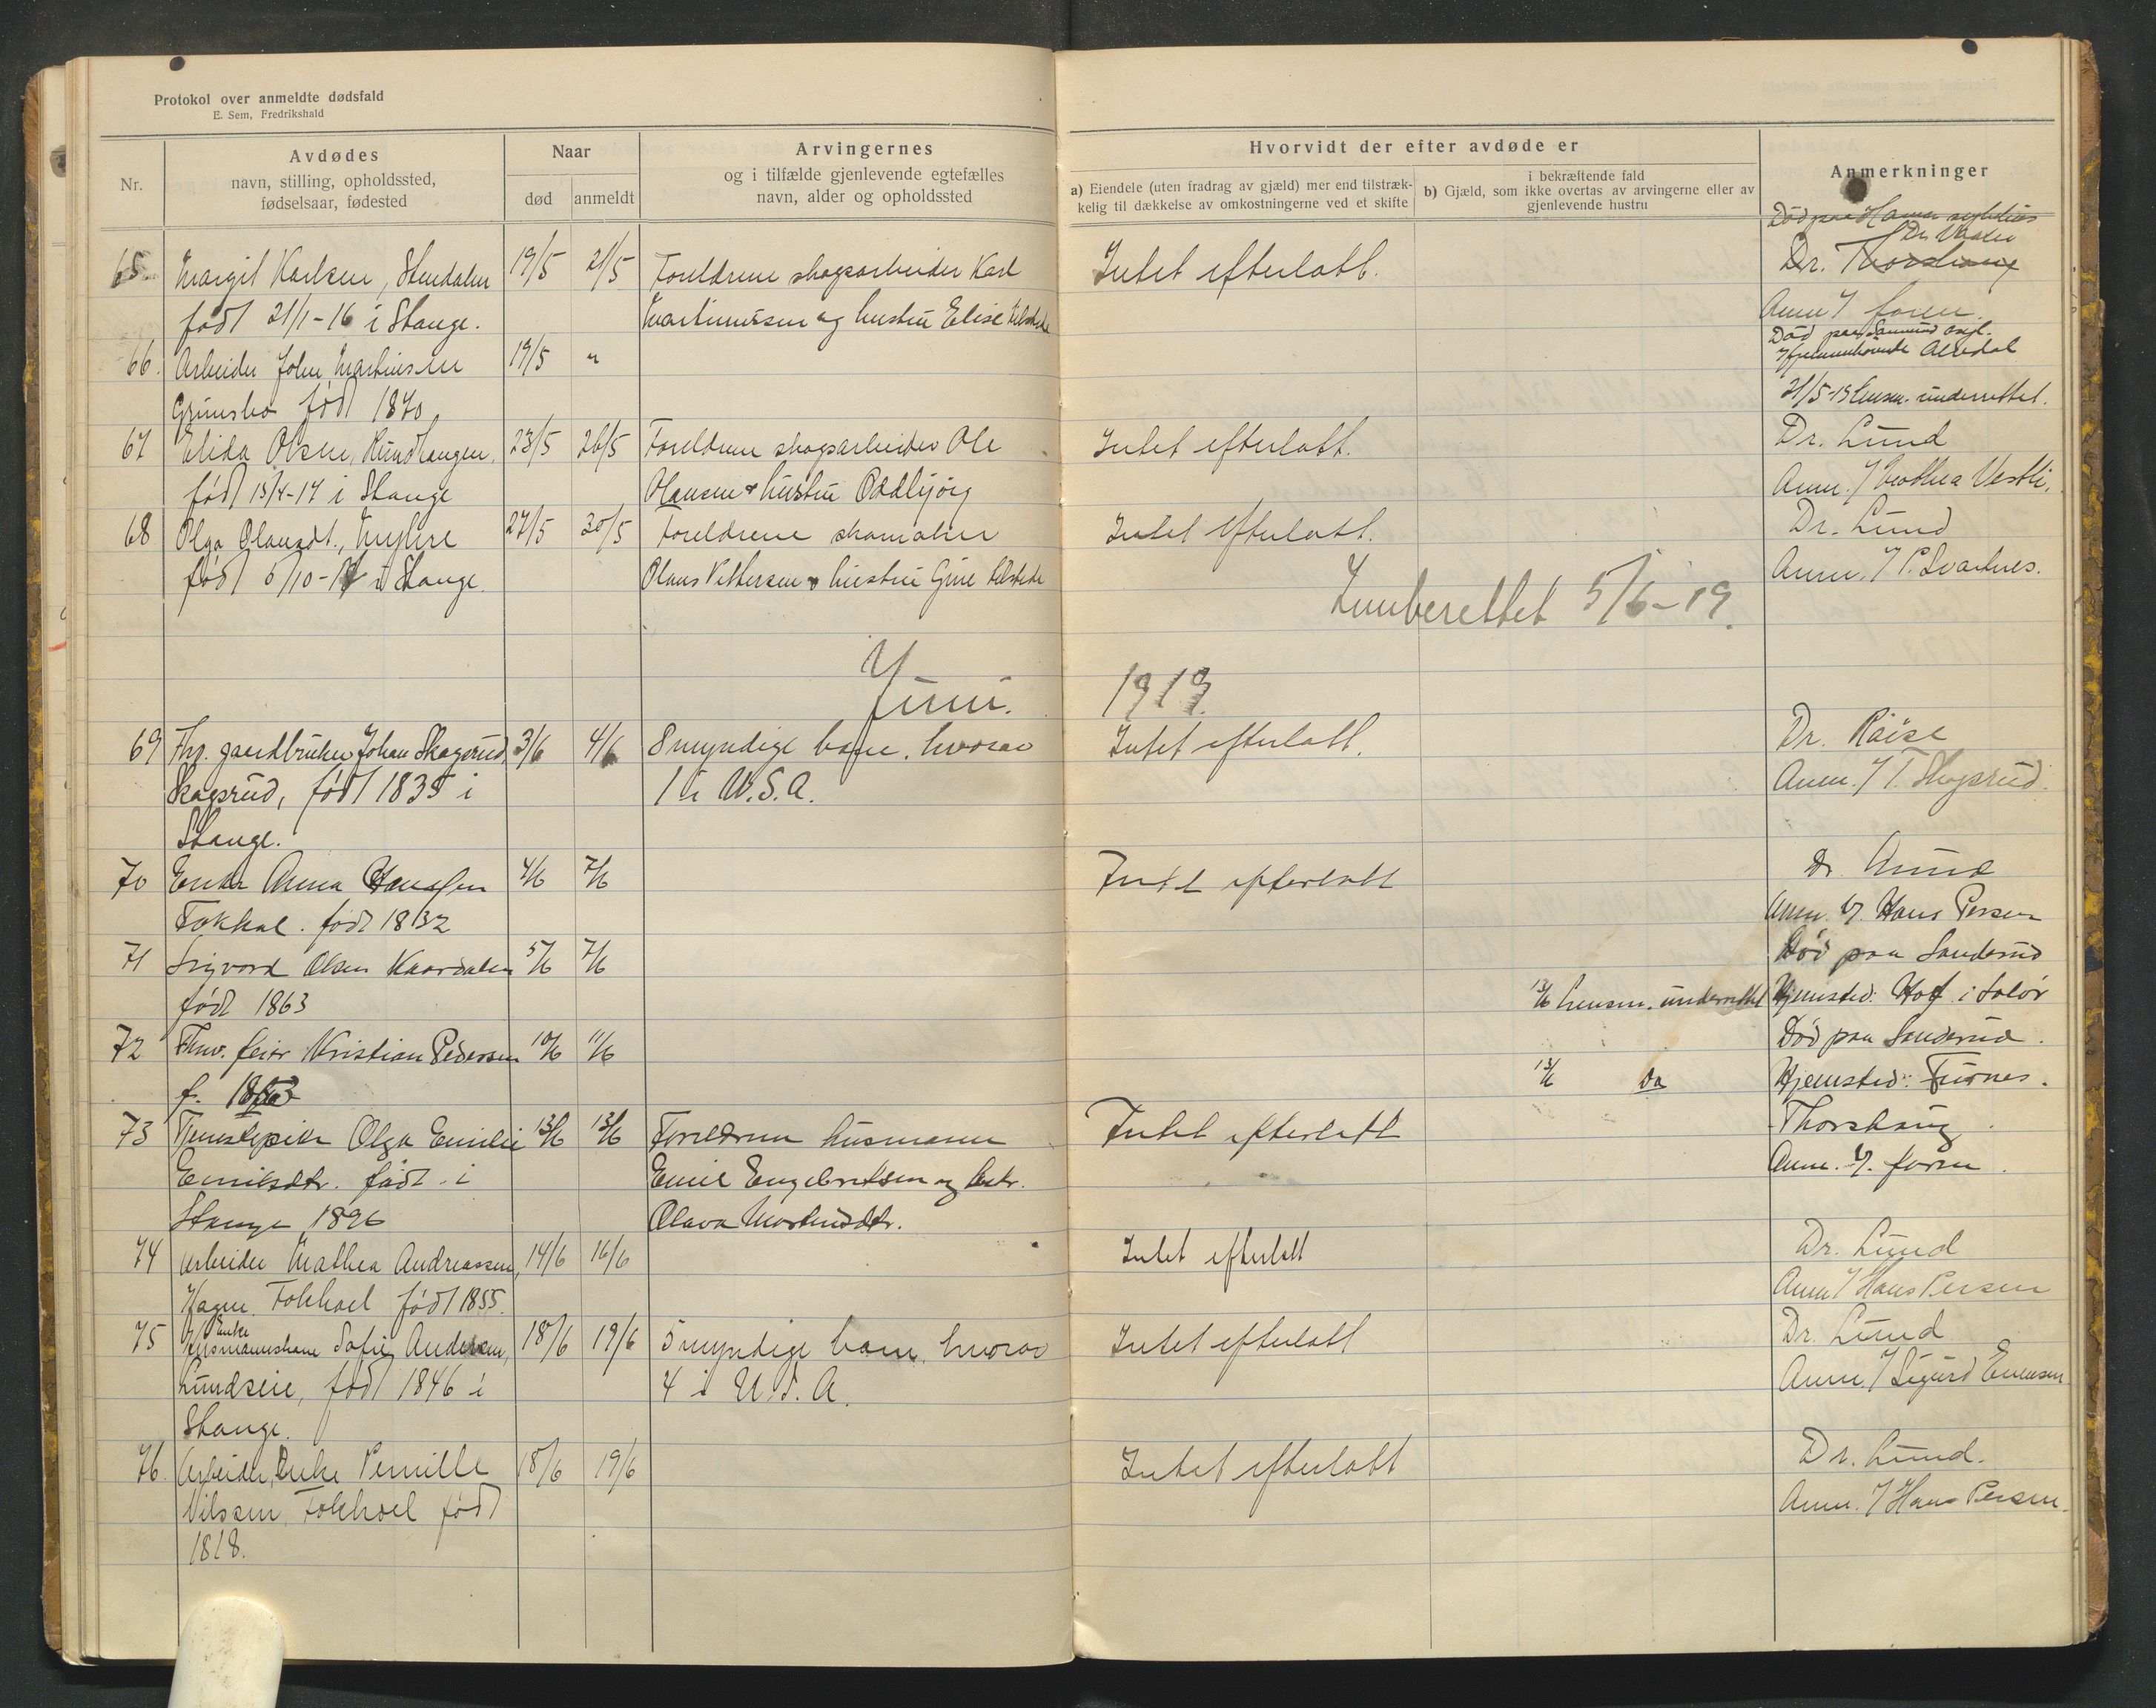 Protokol over anmeldte dødsfald
E. Sem, Fredrikshald
Nr.
Avdødes
navn, stilling, opholdssted,
fødselsaar, fødested
Naar
død
anmeldt
Arvingernes
og i tilfælde gjenlevende egtefælles
navn, alder og opholdssted
Hvorvidt der efter avdøde er
a) Eiendele (uten fradrag av gjæld) mer end tilstræk-
kelig til dækkelse av omkostningerne ved et skifte
i bekræftende fald
b) Gjæld, som ikke overtas av arvingerne eller av
gjenlevende hustru
Anmerkninger
Død paa Hamar sykehus
65 Margit Karlsen, Stendalen 19/5 21/5 Foreldrene skogsarbeider Karl Intet efterlatt. Dr. Thorshaug
født 21/1-16 i Stange. Martinussen og hustru Elise tilstede Anm. / foren.
66. Arbeider Johan Martinsen 19/5 "
født 1870 21/5-19 lensm. underrettet.
67 Elida Olsen, 23/5 26/5 Foreldrene skogsarbeider Ole Intet efterlatt. Dr. Lund
født 15/4-17 i Stange Olausen & hustru Oddbjørg Anm. /
68 Olga Olausdt., 27/5 30/5 Foreldrene skomaker Intet efterlatt. Dr. Lund
født 6/10- i Stange. Olaus Pettersen & hustru Gine tilstede Anm. / P. Svartnes.
Innberettet 5/6-19.
Juni. 1919.
69 Fhv. gaardbruker Johan Skogsrud 3/6 4/6 8 myndige barn, hvorav Intet efterlatt. Dr. Röise
Skogsrud, født 1835 i 1 i U.S.A. Anm. / T. Skogsrud.
Stange.
70 Enke Anna Hansen 4/6 7/6 Intet efterlatt Dr. Lund
født 1832 Anm. v/ Hans Persen
71 Sigvard Olsen Kaardalen 5/6 7/6 Død paa Sanderud
født 1863 13/6 lensm. underrettet Hjemsted: Hof i Solör
72 Fhv. feier Kristian Pedersen 10/6 11/6 Död paa Sanderud.
f. 13/6 Do Hjemsted: Furnes.
73 Tjenestepike Olga Emilie 13/6 13/6 Foreldrene husmann Intet efterlatt Thorshaug
Emilsdtr. født i Emil Engebretsen og hustr. Anm. v/ foren.
Stange 1896 Olava Martinsdtr.
74 Arbeider Mathea Andreassen, 14/6 16/6 Intet efterlatt Dr. Lund
Fokhoel født 1855. Anm / Hans Persen
Enke
75 Husmannskone Sofie Andersen, 18/6 19/6 5 myndige barn, hvorav Intet efterlatt Dr. Lund
Lundseie, født 1846 i 4 i U.S.A. Anm. / Sigurd Evensen
Stange.
76. Arbeider, Enke Pernille 18/6 19/6 Intet efterlatt Dr. Lund.
Nilssen, Fokhoel født Anm. / Hans Persen.
1818.